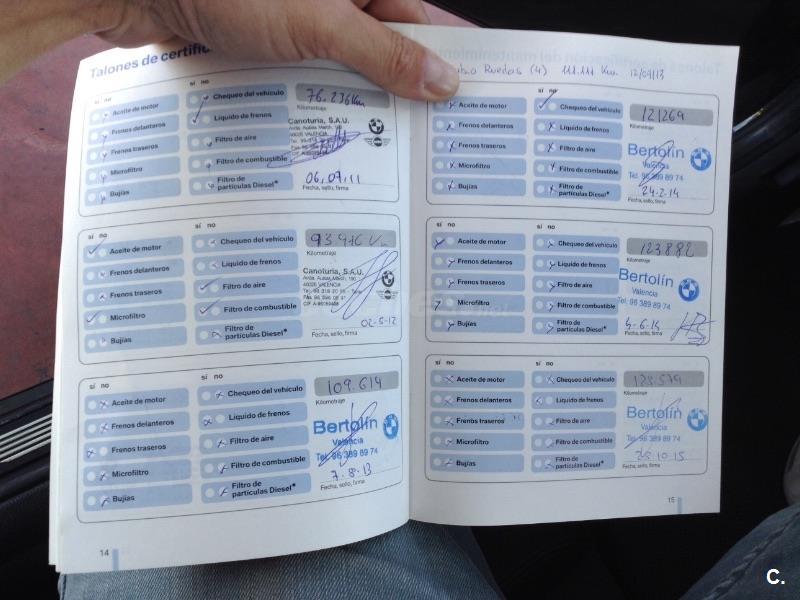 Talones de certific
sí no
Aceite de motor
Frenos delanteros
Frenos traseros
Microfiltro
Bujías
Chequeo del vehículo
Líquido de frenos
Filtro de aire
Filtro de combustible
Filtro de
partículas Diesel*
76.236 Km
Kilometraje
Canoturia, S.A.U.
06,07,11
Fecha, sello, firma
sí no
Aceite de motor
Frenos delanteros
Frenos traseros
Microfiltro
Bujías
Chequeo del vehículo
Líquido de frenos
Filtro de aire
Filtro de combustible
Filtro de
partículas Diesel*
Kilometraje
Canoturia, S.A.U.
02-5-12
Fecha, sello, firma
sí no
Aceite de motor
Frenos delanteros
Frenos traseros
Microfiltro
Bujías
Chequeo del vehículo
Líquido de frenos
Filtro de aire
Filtro de combustible
Filtro de
partículas Diesel*
109.614
Kilometraje
Bertolín
Valencia
Tel. 96 389 89 74
7-8-13
Fecha, sello, firma
14
Ruedas (4) 111.111 Km. 12/09/13
sí no
Aceite de motor
Frenos delanteros
Frenos traseros
Microfiltro
Bujías
Chequeo del vehículo
Líquido de frenos
Filtro de aire
Filtro de combustible
Filtro de
partículas Diesel*
121269
Kilometraje
Bertolín
Valencia
Tel. 96 389 89 74
24-2-14
Fecha, sello, firma
sí no
Aceite de motor
Frenos delanteros
Frenos traseros
Microfiltro
Bujías
Chequeo del vehículo
Líquido de frenos
Filtro de aire
Filtro de combustible
Filtro de
partículas Diesel*
123882
Kilometraje
Bertolín
Valencia
Tel. 96 389 89 74
4-6-14
Fecha, sello, firma
sí no
Aceite de motor
Frenos delanteros
Frenos traseros
Microfiltro
Bujías
Chequeo del vehículo
Líquido de frenos
Filtro de aire
Filtro de combustible
Filtro de
partículas Diesel*
Kilometraje
Bertolín
Valencia
Tel. 96 389 89 74
Fecha, sello, firma
15
C.